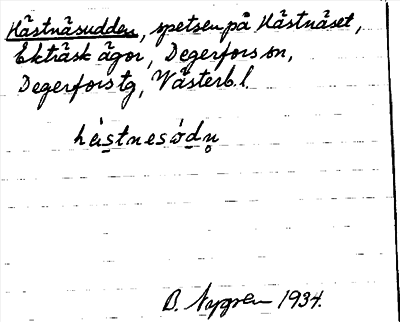 Hästnäsudden, spetsen på Hästnäset,
Ekträsk ägor, Degerfors sn,
Degerfors tg, Västerb. l.
hästnesòdn̥
B. Nygren 1934.